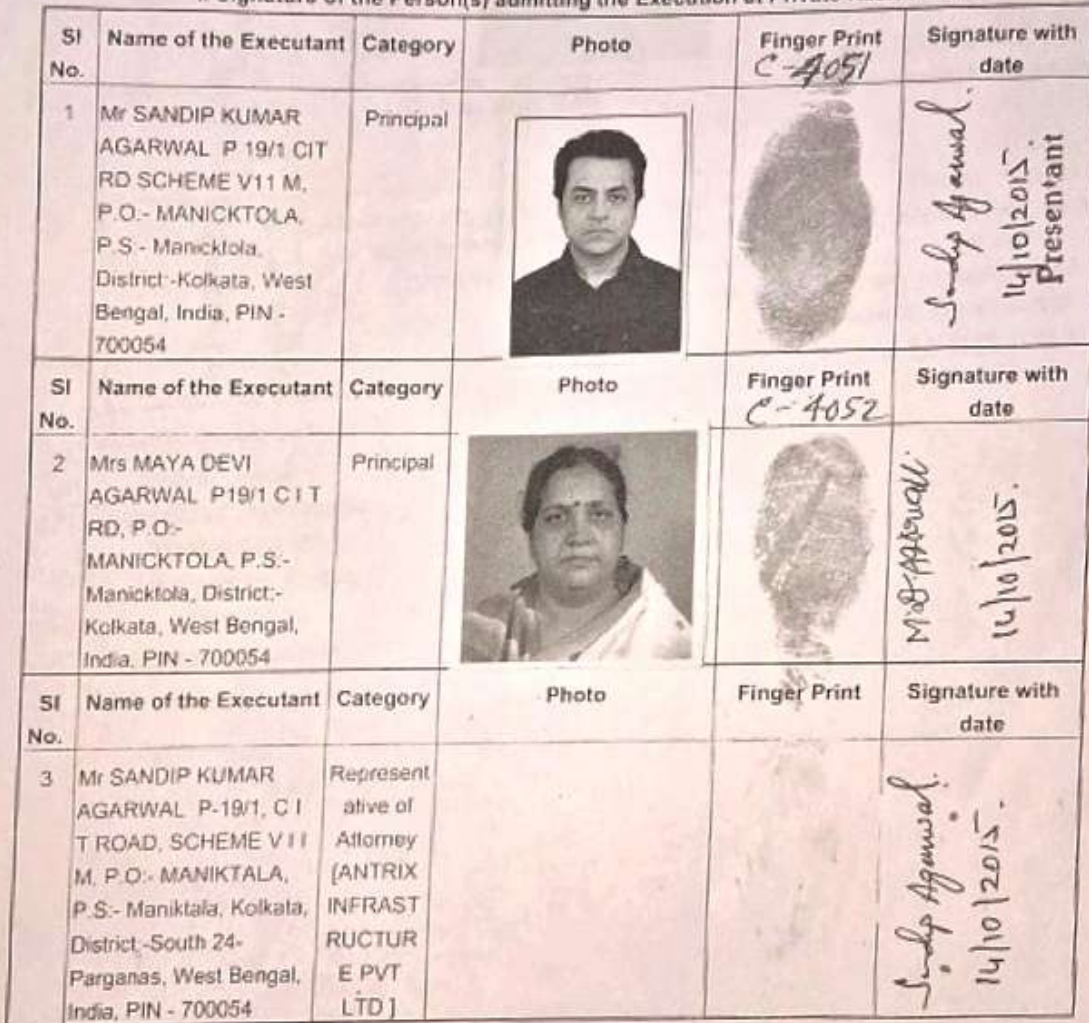 Signature of the Person(s) admitting the Execution at Private
Sl No. Name of the Executant Category Photo Finger Print Signature with date
C-4051
1 Mr SANDIP KUMAR Principal
AGARWAL P 19/1 CIT
RD SCHEME V11 M,
P.O:- MANICKTOLA,
P.S:- Manicktola,
District:-Kolkata, West
Bengal, India, PIN -
700054
Sandip Agarwal.
14/10/2015.
Presentant
Sl No. Name of the Executant Category Photo Finger Print Signature with date
C-4052
2 Mrs MAYA DEVI Principal
AGARWAL P19/1 C I T
RD, P.O:-
MANICKTOLA, P.S:-
Manicktola, District:-
Kolkata, West Bengal,
India, PIN - 700054
14/10/2015.
Sl No. Name of the Executant Category Photo Finger Print Signature with date
3 Mr SANDIP KUMAR
AGARWAL P-19/1, C I
T ROAD, SCHEME V I I
M, P.O:- MANIKTALA,
P.S:- Maniktala, Kolkata,
District:-South 24-
Parganas, West Bengal,
India, PIN - 700054
Represent
ative of
Attorney
[ANTRIX
INFRAST
RUCTUR
E PVT
LTD ]
Sandip Agarwal.
14/10/2015.